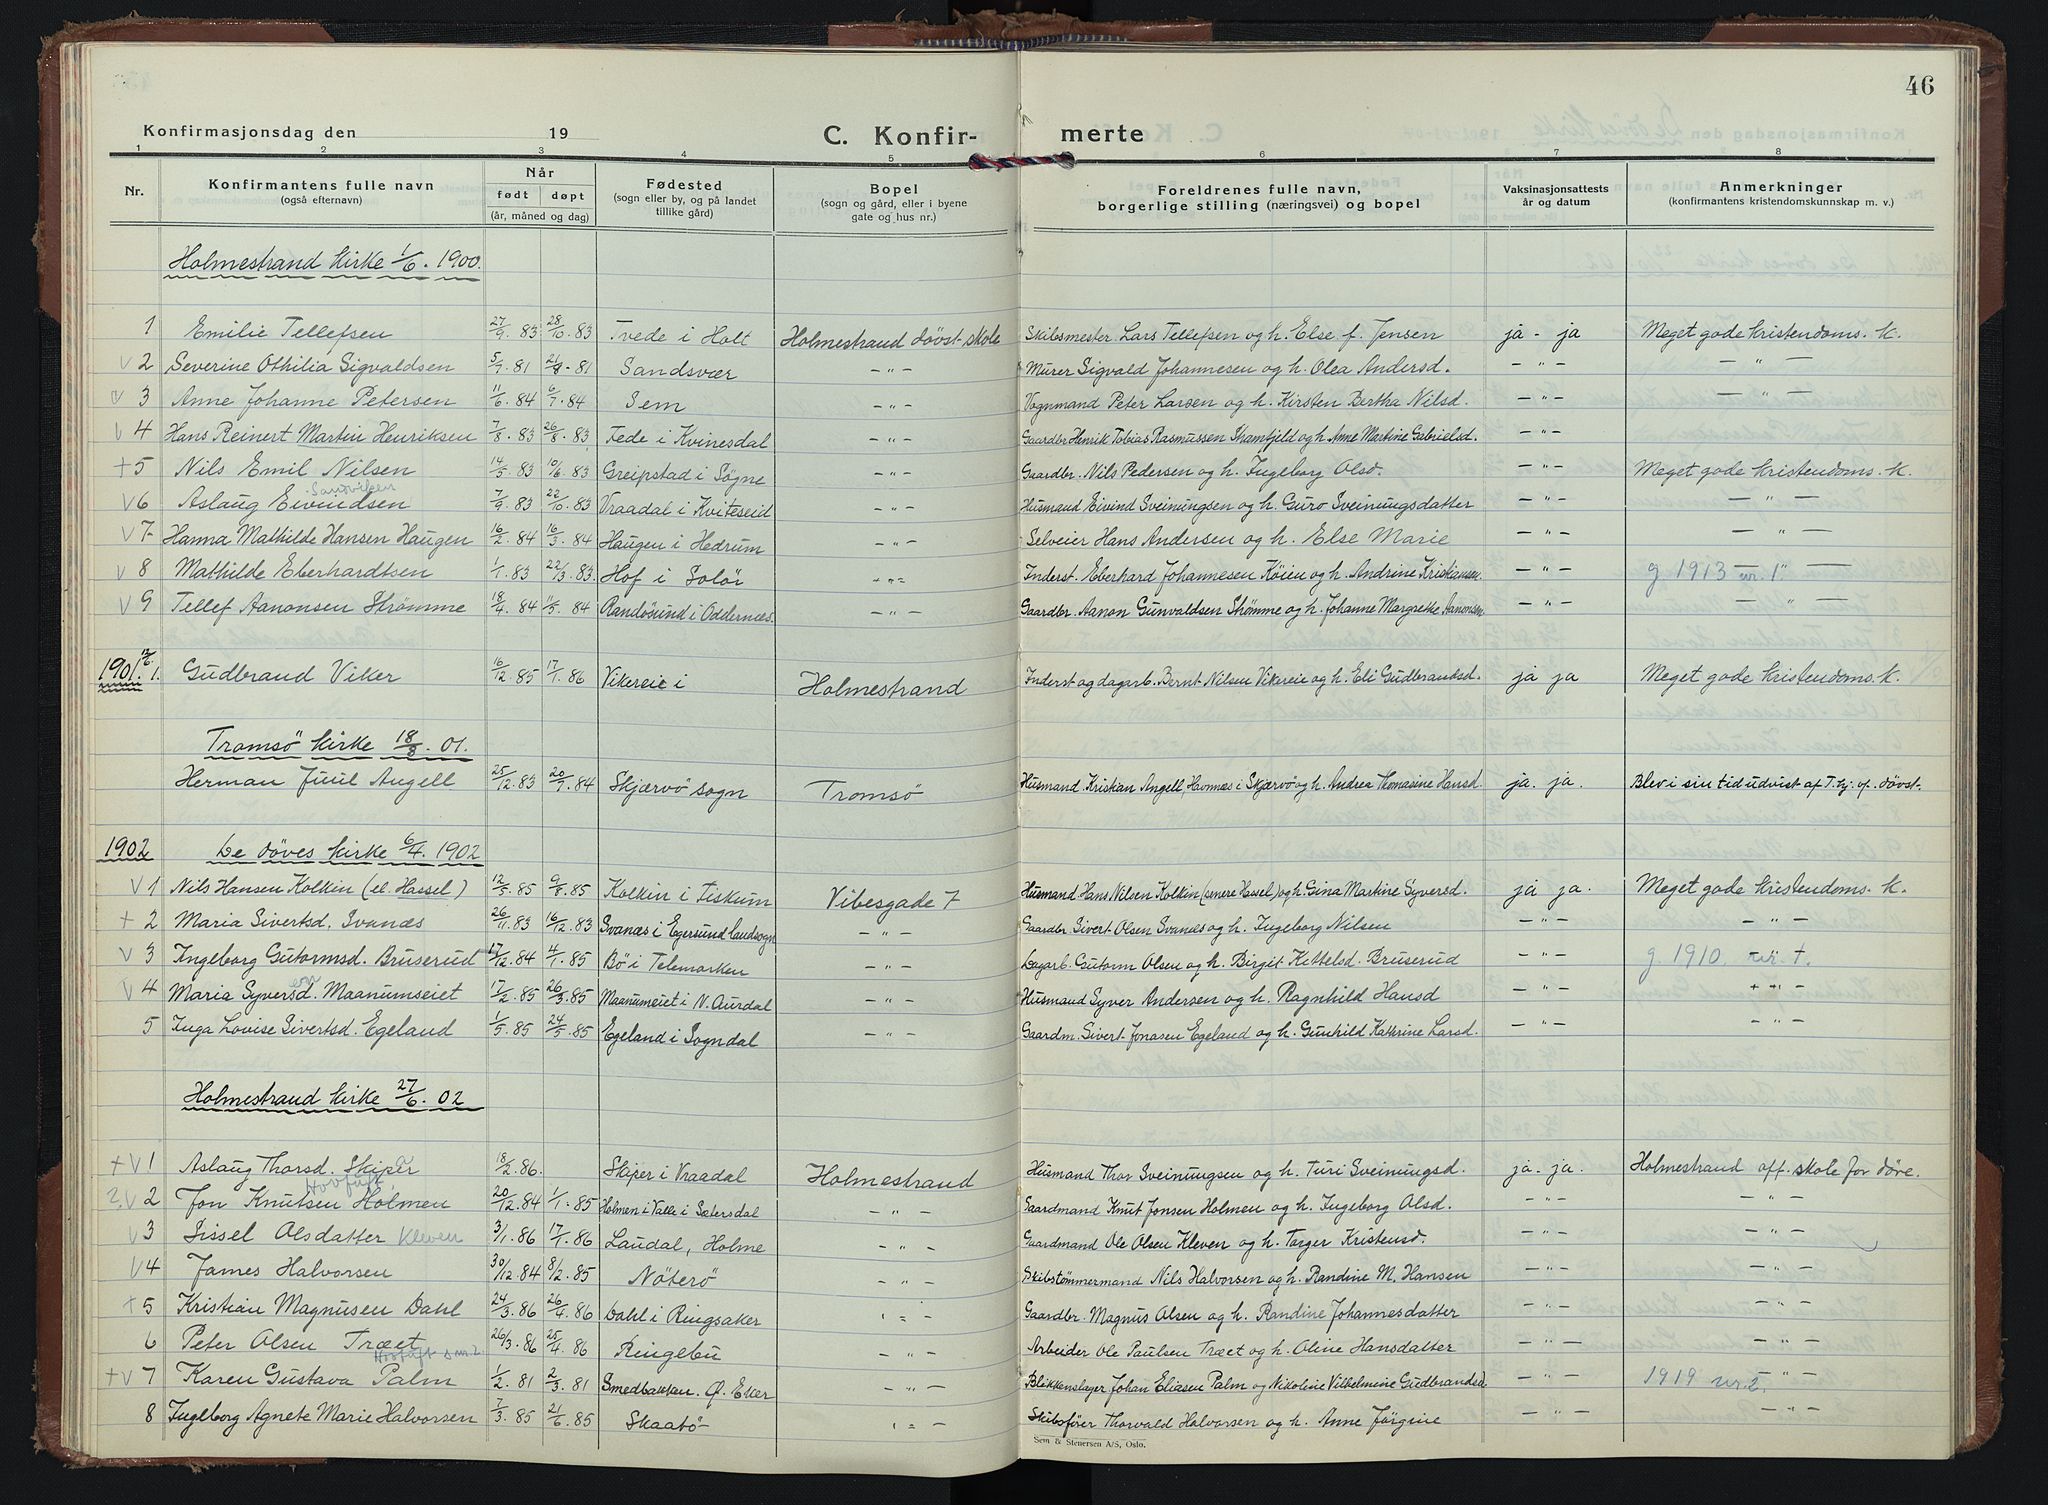 46
Konfirmasjonsdag den 19
C. Konfir- merte
1 2 3 4 5 6 7 8
Nr. Konfirmantens fulle navn (også efternavn) Når født døpt (år, måned og dag) Fødested (sogn eller by, og på landet tillike gård) Bopel (sogn og gård, eller i byene gate og hus nr.) Foreldrenes fulle navn, borgerlige stilling (næringsvei) og bopel Vaksinasjonsattests år og datum Anmerkninger (konfirmantens kristendomskunnskap m. v.)
Holmestrand kirke 1/6. 1900.
1 Emilie Tellefsen 27/9. 83 28/10. 83 Tvede i Holt Holmestrand døvst. skole Skibsmester Lars Tellefsen og h. Else f. Jensen ja - ja Meget gode kristendoms. k.
V 2 Severine Othilia Sigvaldsen 5/7. 81 21/8 - 81 Sandsvær — " — Murer Sigvald Johannesen og h. Olea Andersd. — " — — " —
V 3 Anne Johanne Petersen 11/6. 84 6/7. 84 Sem — " — Vognmand Peter Larsen og h. Kirsten Bertha Nilsd. — " — — " —
V 4 Hans Reinert Martin Henriksen 7/8. 83 26/8. 83 Fede i Kvinesdal — " — Gaardbr Henrik Tobias Rasmussen Skamfjeld og h. Anne Martine Gabrielsd. — " —
+ 5 Nils Emil Nilsen 14/5. 83 10/6. 83 Greipstad i Søgne — " — Gaardbr. Nils Pedersen og h. Ingeborg Olsd. — " — Meget gode kristendoms. k.
V 6 Aslaug Eivindsen Sandviken 7/9. 83 22/10. 83 Vraadal i Kviteseid — " — Husmand Eivind Sveinungsen og h. Guro Sveinungsdatter — " — — " —
V 7 Hanna Mathilde Hansen Haugen 16/2. 84 16/3. 84 Haugen i Hedrum — " — Selveier Hans Andersen og h. Else Marie — " — — " —
V 8 Mathilde Eberhardtsen 1/1. 83 22/3. 83. Hof i Solör — " — Inderst. Eberhard Johannesen Köien og h. Andrine Kristiansen. — " — g 1913 nr. 1. — " —
V 9 Tellef Aanonsen Strømme 18/4. 84 11/5. 84 Randösund i Oddernes. — " — Gaardbr. Aanon Gunvaldsen Stømme og h. Johanne Margrethe Aanonsen — " — — " —
1901. 12/6. 1. Gudbrand Viker 16/12. 85 17/1. 86 Vikereie i Holmestrand Inderst og dagarb. Bernt Nilsen Vikereie og h. Eli Gudbrandsd. ja ja Meget gode kristendoms. k.
Tromsö kirke 18/8. 01.
Herman Juul Angell 25/12. 83 20/7. 84 Skjærvö sogn Tromsö Husmand Kristian Angell, Havnnes i Skjærvö og h. Andrea Thomasine Hansd. ja. ja. Blev i sin tid udvist af T.hj. of. døvst.
1902 De döves kirke 6/4. 1902
V 1 Nils Hansen Kolkin (el. Hassel) 12/5. 85 9/8. 85 Kolkin i Fiskum Vibesgade 7 Husmand Hans Nilsen Kolkin (senere Hassel) og h. Gina Martine Syversd. ja ja. Meget gode kristendoms. k.
+ 2 Maria Sivertsd. Svanæs 26/11. 83 16/12. 83 Svanæs i Egersund landsogn — " — Gaardbr Sivert Olsen Svanæs og h. Ingeborg Nilsen — " — — " —
V 3 Ingeborg Gutormsd. Bruserud 17/12. 84 4/1. 85 Bö i Telemarken — " — Dagarb. Gutorm Olsen og h. Birgit Kittelsd. Bruserud — " — g. 1910. nr. 7.
V 4 Maria Syversd. Maanumseiet 17/2. 85 26/3. 85 Maanumeiet i N. Aurdal — " — Husmand Syver Andersen og h. Ragnhild Hansd — " — — " —
5 Inga Lovise Sivertsd. Egeland 1/5. 85 24/5. 85 Egeland i Sogndal — " — Gaardm. Sivert Jonasen Egeland og h. Gunhild Kathrine Larsd. — " — — " —
Holmestrand kirke 27/6. 02
+ V 1 Aslaug Thorsd. Skiper 18/2. 86. Skiper i Vraadal Holmestrand Husmand Thor Sveinungsen og h. Turi Sveinungsd. ja. ja. Holmestrand off. skole for døve.
? V 2 Jon Knutsen Holmen Hovtuft 20/12. 84 1/1. 85 Holmen i Valle i Sætersdal — " — Gaardmand Knut Jonsen Holmen og h. Ingeborg Olsd. — " — — " —
V 3 Sissel Olsdatter Kleven 3/1. 86 17/1. 86 Laudal, Holme — " — Gaardmand Ole Olsen Kleven og h. Torger Kristensd. — " — — " —
V 4 James Halvorsen 30/12. 84 8/2. 85 Nöterö — " — Skibstömmermand Nils Halvorsen og h. Randine M. Hansen — " — — " —
+ 5 Kristian Magnusen Dahl 24/3. 86 26/4. 86 Dahl i Ringsaker — " — Gaardbr. Magnus Olsen og h. Randine Johannesdatter — " — — " —
6 Peter Olsen Træet 26/3. 86 25/4. 86 Ringebu — " — Arbeider Ole Paulsen Træet og h. Oline Hansdatter — " — — " —
+ V 7 Karen Gustava Palm Hovtuft s nr. 2. 1/2. 81 2/3. 81 Smedbakken. Ø. Eker — " — Blikkenslager Johan Eliasen Palm og Nikoline Vilhelmine Gudbrandsd — " — 1919 nr. 2. — " —
8 Ingeborg Agnete Marie Halvorsen 7/3. 85 21/6. 85 Skaatö — " — Skibsfører Thorvald Halvorsen og h. Anne Jörgine — " — — " —
Sem & Stenersen A/S, Oslo.